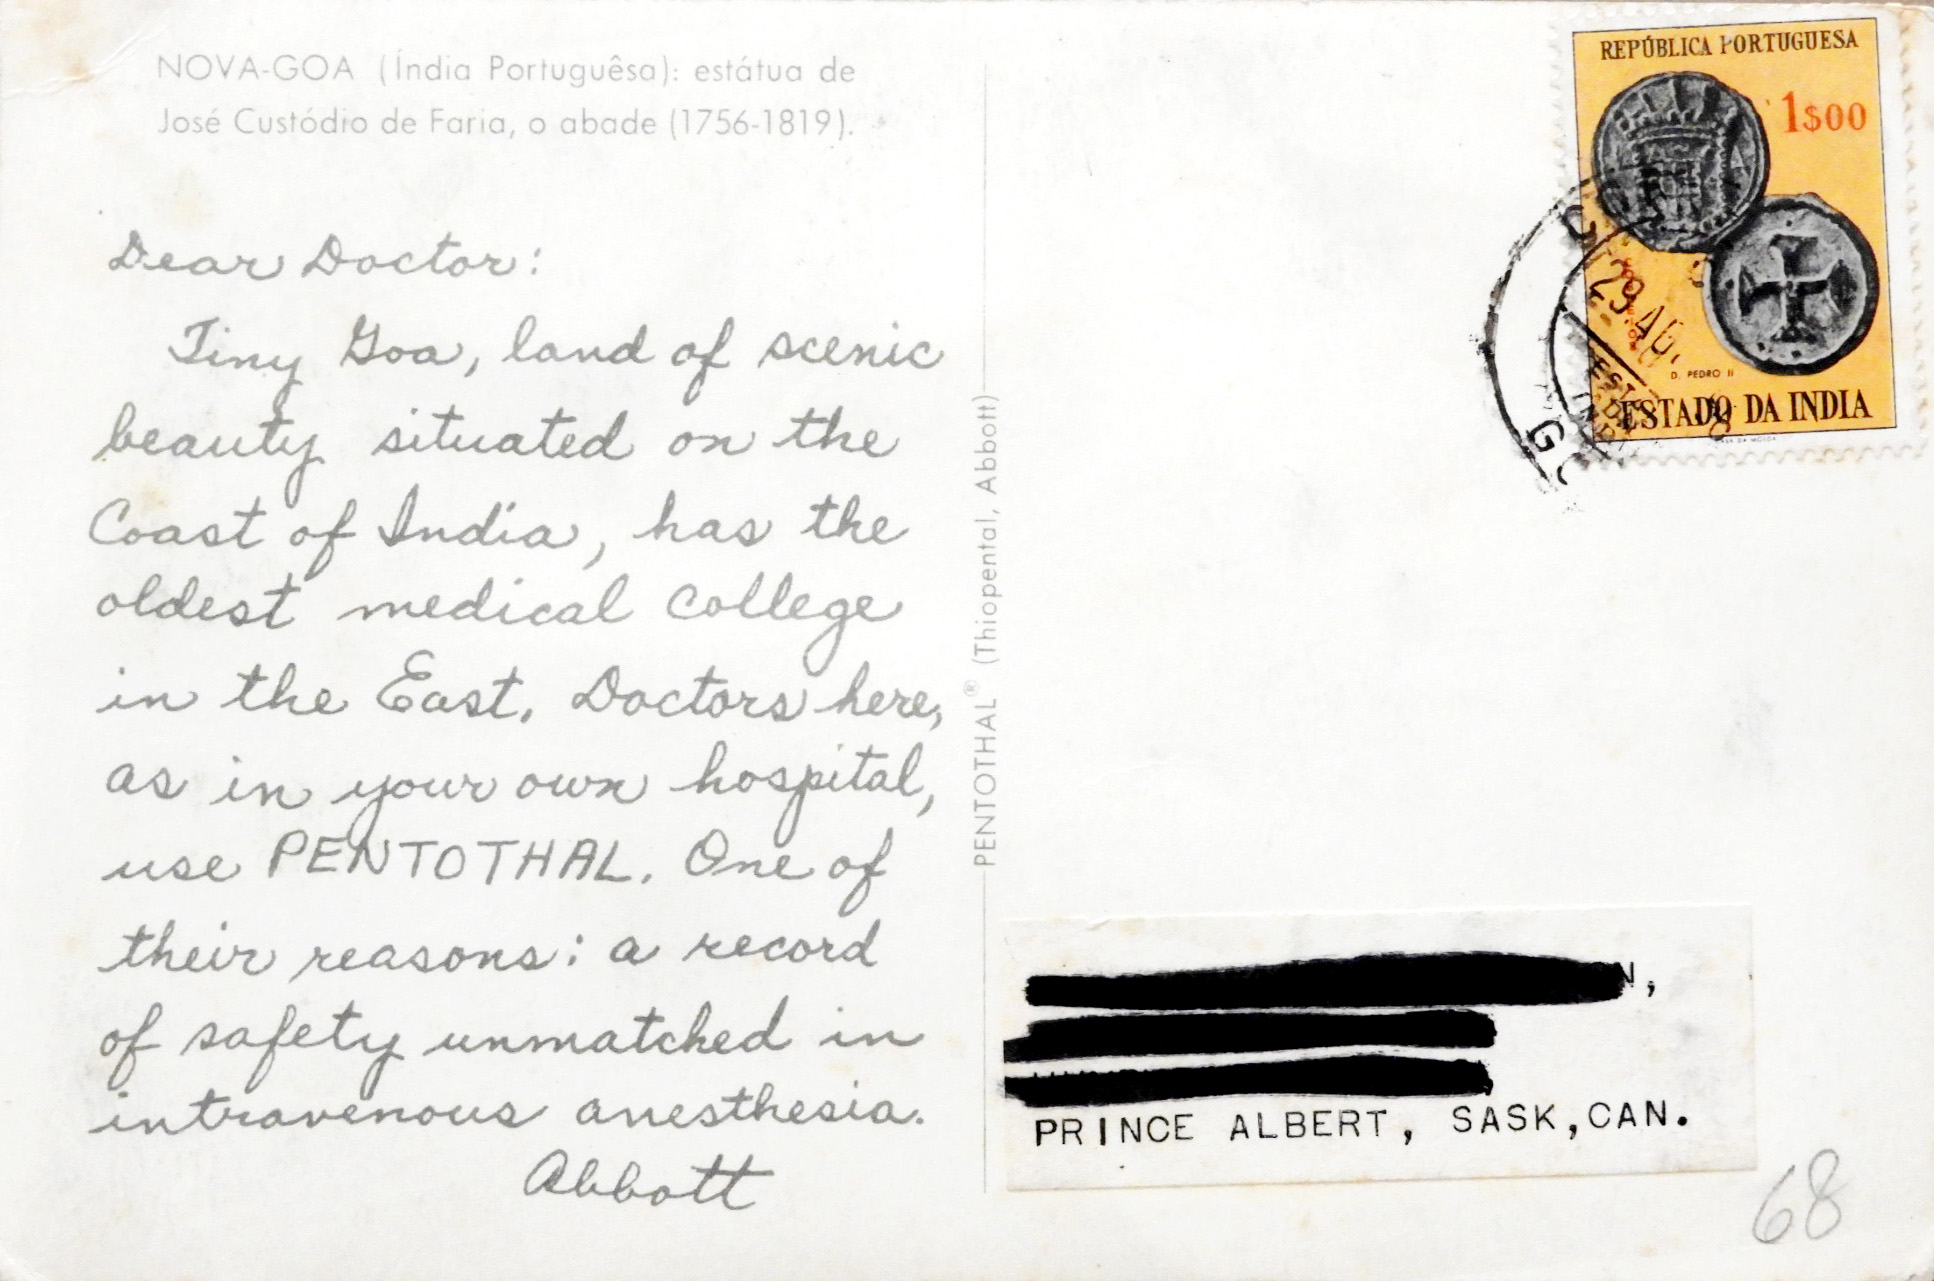 NOVA-GOA (Índia Portuguêsa): estátua de
José Custódio de Faria, o abade (1756-1819).
Dear Doctor:
Tiny Goa, land of scenic
beauty situated on the
Coast of India, has the
oldest medical college
in the East. Doctors here,
as in your own hospital,
use PENTOTHAL. One of
their reasons: a record
of safety unmatched in
intravenous anesthesia.
Abbott
PENTOTHAL® (Thiopental, Abbott)
REPÚBLICA PORTUGUESA
1$00
D. PEDRO II
ESTADO DA INDIA
29.AG.
EST.
DA
INDIA
N,
PRINCE ALBERT, SASK,CAN.
68